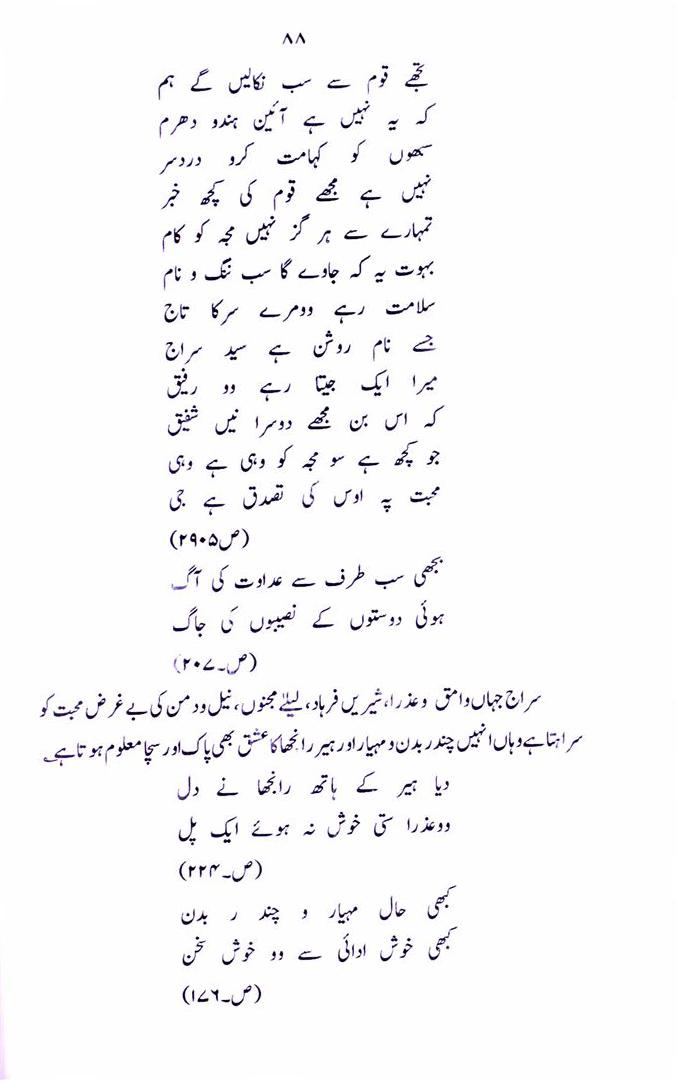 ۸۸
تجھے قوم سے سب نکالیں گے ہم
کہ یہ نہیں ہے آئین ہندو دھرم
سبھوں کو کہامت کرو دردسر
نہیں ہے مجھے قوم کی کچھ خبر
تمہارے سے ہر گز نہیں مجہ کو کام
بہوت یہ کہ جاوے گا سب ننگ و نام
سلامت رہے وومرے سرکا تاج
جسے نام روشن ہے سید سراج
میرا ایک جیتا رہے وو رفیق
کہ اس بن مجھے دوسرا نیں شفیق
جو کچھ ہے سو مجہ کو وہی ہے وہی
محبت پہ اوس کی تصدق ہے جی
(ص۲۹۰۵)
بجھی سب طرف سے عداوت کی آگ
ہوئی دوستوں کے نصیبوں کی جاگ
(ص۔۲۰۷)
سراج جہاں وامق و عذرا، شیریں فرہاد، لیلےٰ مجنوں، نیل ودمن کی بے غرض محبت کو
سراہتا ہے وہاں انہیں چندر بدن و مہیار اور ہیر رانجھا کا عشق بھی پاک اور سچا معلوم ہوتا ہے۔
دیا ہیر کے ہاتھ رانجھا نے دل
ووعذرا ستی خوش نہ ہوئے ایک پل
(ص۔۲۲۴)
کبھی حال مہیار و چند ر بدن
کبھی خوش ادائی سے وو خوش سخن
(ص۔۱۷۶)